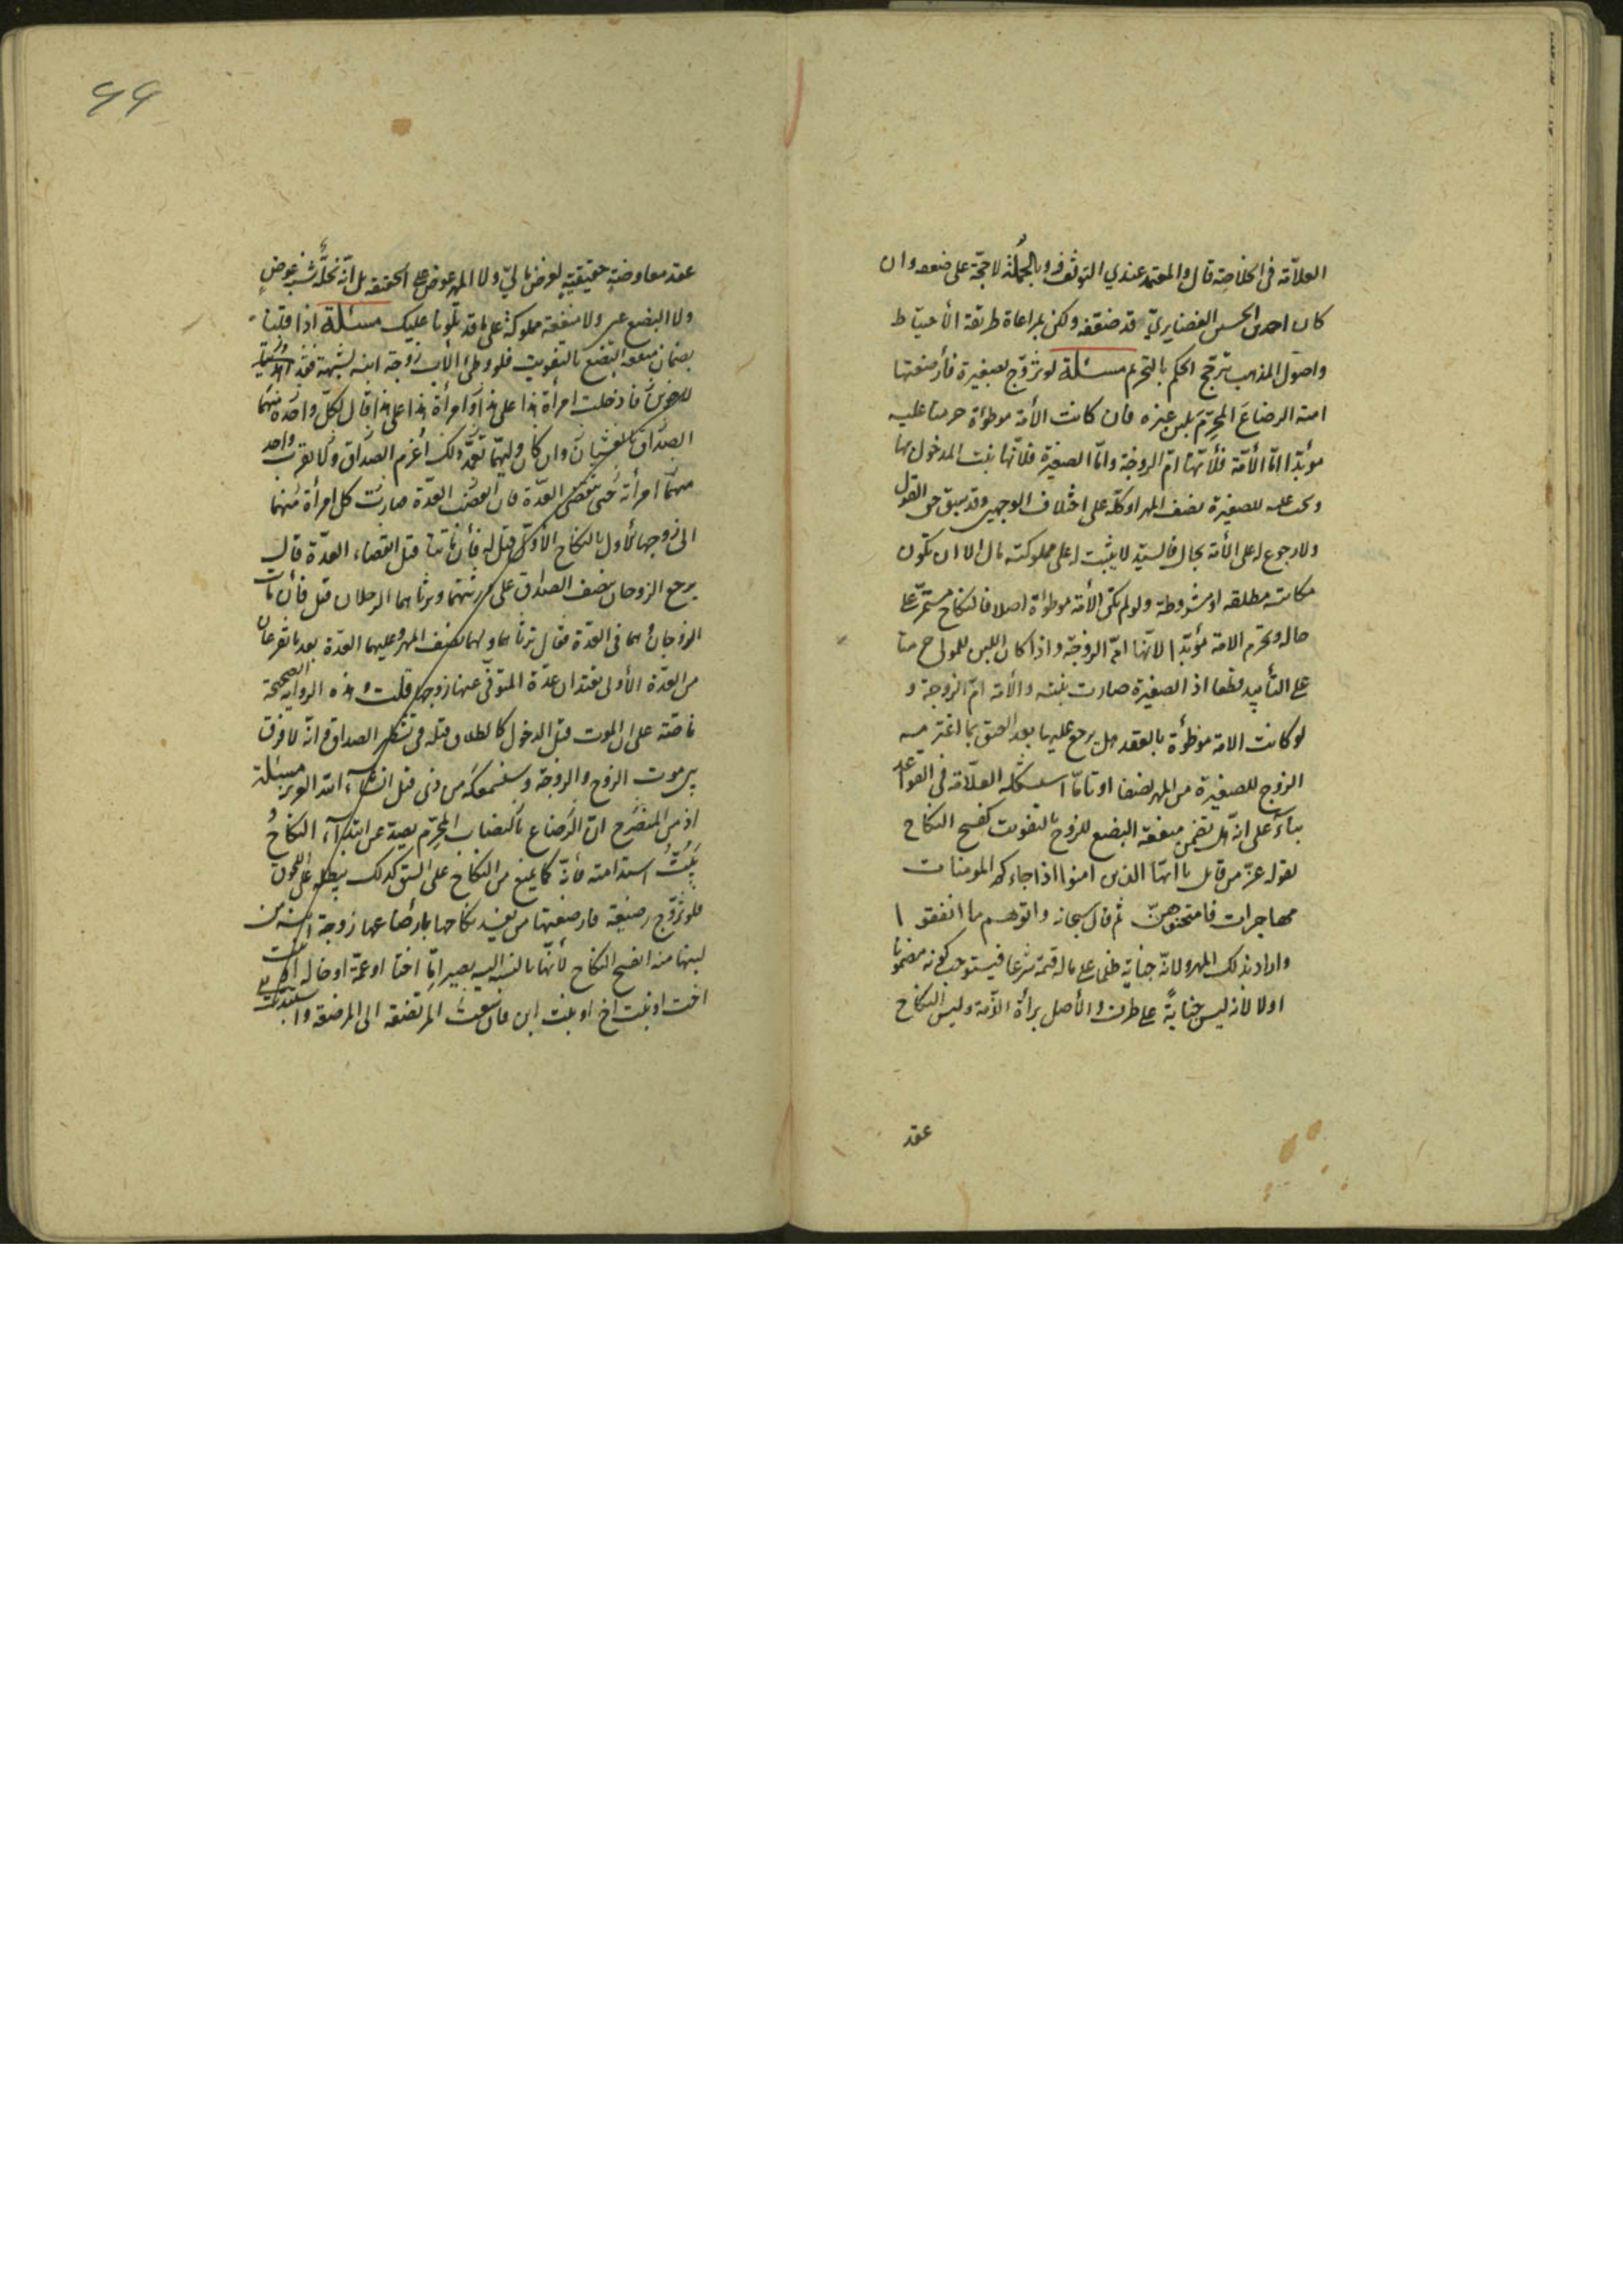 العلّامة في الخلاصة قال والمعتمد عندي التوقف وبالجملة لا حجّة على ضعفه وان
كان احمد بن الحسين الغضايري قد ضعّفه ولكن بمراعاة طريقة الأحتياط
واصول المذهب يترجّح الحكم بالتحريم مسئلة لو تزوّج بصغيرة فأرضعتها
امته الرضاع المحرّم بلبن غيره فان كانت الأمة موطؤة حرمتا عليه
مؤبّدا امّا الأمّة فلأنّها امّ الزوجة وامّا الصغيرة فلأنّها بنت المدخول بها
ويجب عليه للصغيرة نصف المهر او كلّه على اختلاف الوجهين وقد سبق حق القول
ولا رجوع له على الأمة بحال فالسيّد لا يثبت له على مملوكته مال الا ان تكون
مكاتبة مطلقة او مشروطة ولو لم تكن الأمة موطؤة اصلا فالنكاح مستمرّ على
حاله وتحرم الامة مؤبّدا لأنّها امّ الزوجة واذا كان اللبن للمولى حرمتا
على التأبيد قطعا اذ الصغيرة صارت بنته والأمة امّ الزوجة و
لو كانت الامة موطؤة بالعقد هل يرجع عليها بعد العتق بما اغترمه
الزوج للصغيرة من المهر نصفا او تامّا استشكله العلّامة في القواعد
بناءً على انّه هل تضمن منفعة البضع للزوج بالتفويت كفسخ النكاح
لقوله عزّ من قائل يا ايّها الذين امنوا اذا جاءكم المومنات
مهاجرات فامتحنوهنّ ثم قال سبحانه واتوهم ما انفقوا
واراد بذلك المهر ولانّه جناية خطى على ما له قيمة شرعا فيستوجب كونه مضمونا
اولا لانه ليس جنايةً على طرف والأصل برأة الذّمة وليس النكاح
عقد
٩٩
عقد معاوضةٍ حقيقيةٍ لعوض ماليّ ولا المهر عوض على الحقيقة بل انّه نحلة شبه عوضٍ
ولا البضع عين ولا منفعة مملوكة على ما قد تلونا عليك مسئلة اذا قلنا
بضمان منفعة البضع بالتفويت فلو وطئ الأب زوجة ابنه لشبهة
فأدخلت امرأة هذا على هذا وامرأة هذا على هذا قال لكلّ واحدة منهما
الصداق بالغشيان وان كان وليّهما تعمّد ذلك اُغرم الصداق ولا يقرب واحد
منهما امرأته حتى تنقضى العدّة فان انقضت العدّة صارت كل امرأة منهما
الى زوجها الأول بالنكاح الأوّل قيل له فأن ماتتا قبل انقضاء العدّة قال
يرجع الزوجان بنصف الصداق على ورثتهما ويرثانهما الرجلان قيل فأن مات
الزوجان وهما في العدّة فقال ترثانهما ولهما نصف المهر وعليهما العدّة بعد ما تفرغان
من العدّة الأولى تعتدان عدّة المتوفّى عنها زوجها قلت وهذه الرواية الصحيحة
ناصّة على ان الموت قبل الدخول كالطلاق قبله في تشطر الصداق وانّه لا فرق
بين موت الزوج والزوجة وستسمعه من ذي قبل انشاء الله العزيز مسئلة
اذ من المنصرح انّ الرضاع بالنصاب المحرّم يصدّ عن ابتداء النكاح
يبُتُّ استدامته فأنّه كما يمنع من النكاح على السبق كذلك يبطله على اللحوق
فلو تزوّج رضيعة فارضعتها من يفسد نكاحها بارضاعها زوجة
لبنها منه انفسخ النكاح لأنّها بالنسبة اليه تصير امّا اختا او عمّة او خالة
اخت او بنت اخ او بنت ابن فان سعت المرتضعة الى المرضعة